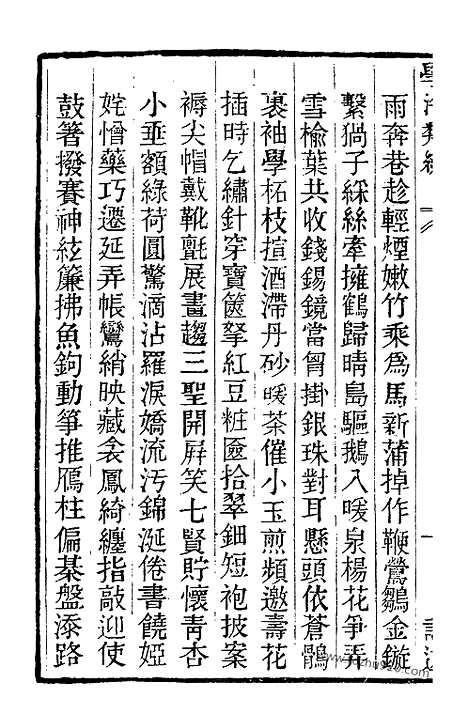 學海類編
雨奔巷趁輕煙嫩竹乘爲馬新蒲掉作鞭鶯鶵金鏇
繫猧子綵絲牽擁鶴歸晴島驅鵝入暖泉楊花爭弄
雪榆葉共收錢錫鏡當胷掛銀珠對耳懸頭依蒼鶻
裹袖學柘枝揎酒滯丹砂暖茶催小玉煎頻邀壽花
插時乞繡針穿寶篋拏紅豆粧匳拾翠鈿短袍披案
褥尖帽戴靴氈展畫趨三聖開屛笑七賢貯懷青杏
小垂額綠荷圓驚滴沾羅淚嬌流汚錦涎倦書饒婭
姹憎藥巧遷延弄帳鸞綃映藏衾鳳綺纏指敲迎使
鼓箸撥賽神絃簾拂魚鉤動箏推鴈柱偏棊盤添路